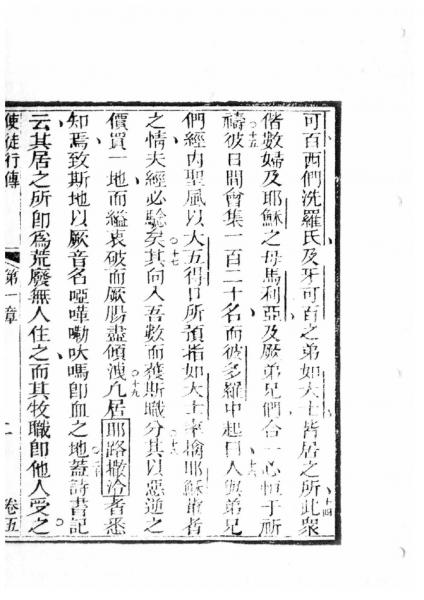 可百西們洗羅氏及牙可百之弟如大士皆居之所此衆
偕數婦及耶穌之母馬利亞及厥弟兄們合一心恒于祈
禱彼日間會集一百二十名而彼多羅中起曰人與弟兄
們經內聖風以大五得口所預指如大士率擒耶穌輩者
之情夫經必驗矣其向入吾數而獲斯職分其以惡逆之
價買一地而縊衷破而厥腸盡傾洩凡居耶路撒冷者悉
知焉致斯地以厥音名啞嘩嘞吠嗎即血之地蓋詩書記
云其居之所即為荒廢無人住之而其牧職即他人受之
使徒行傳 第一章 二 卷五